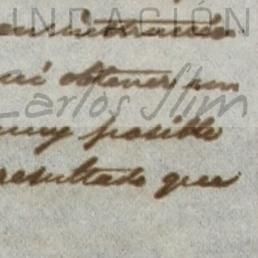 FUNDACIÓN
administración
así obtener con
Carlos Slim
muy posible
resultado que